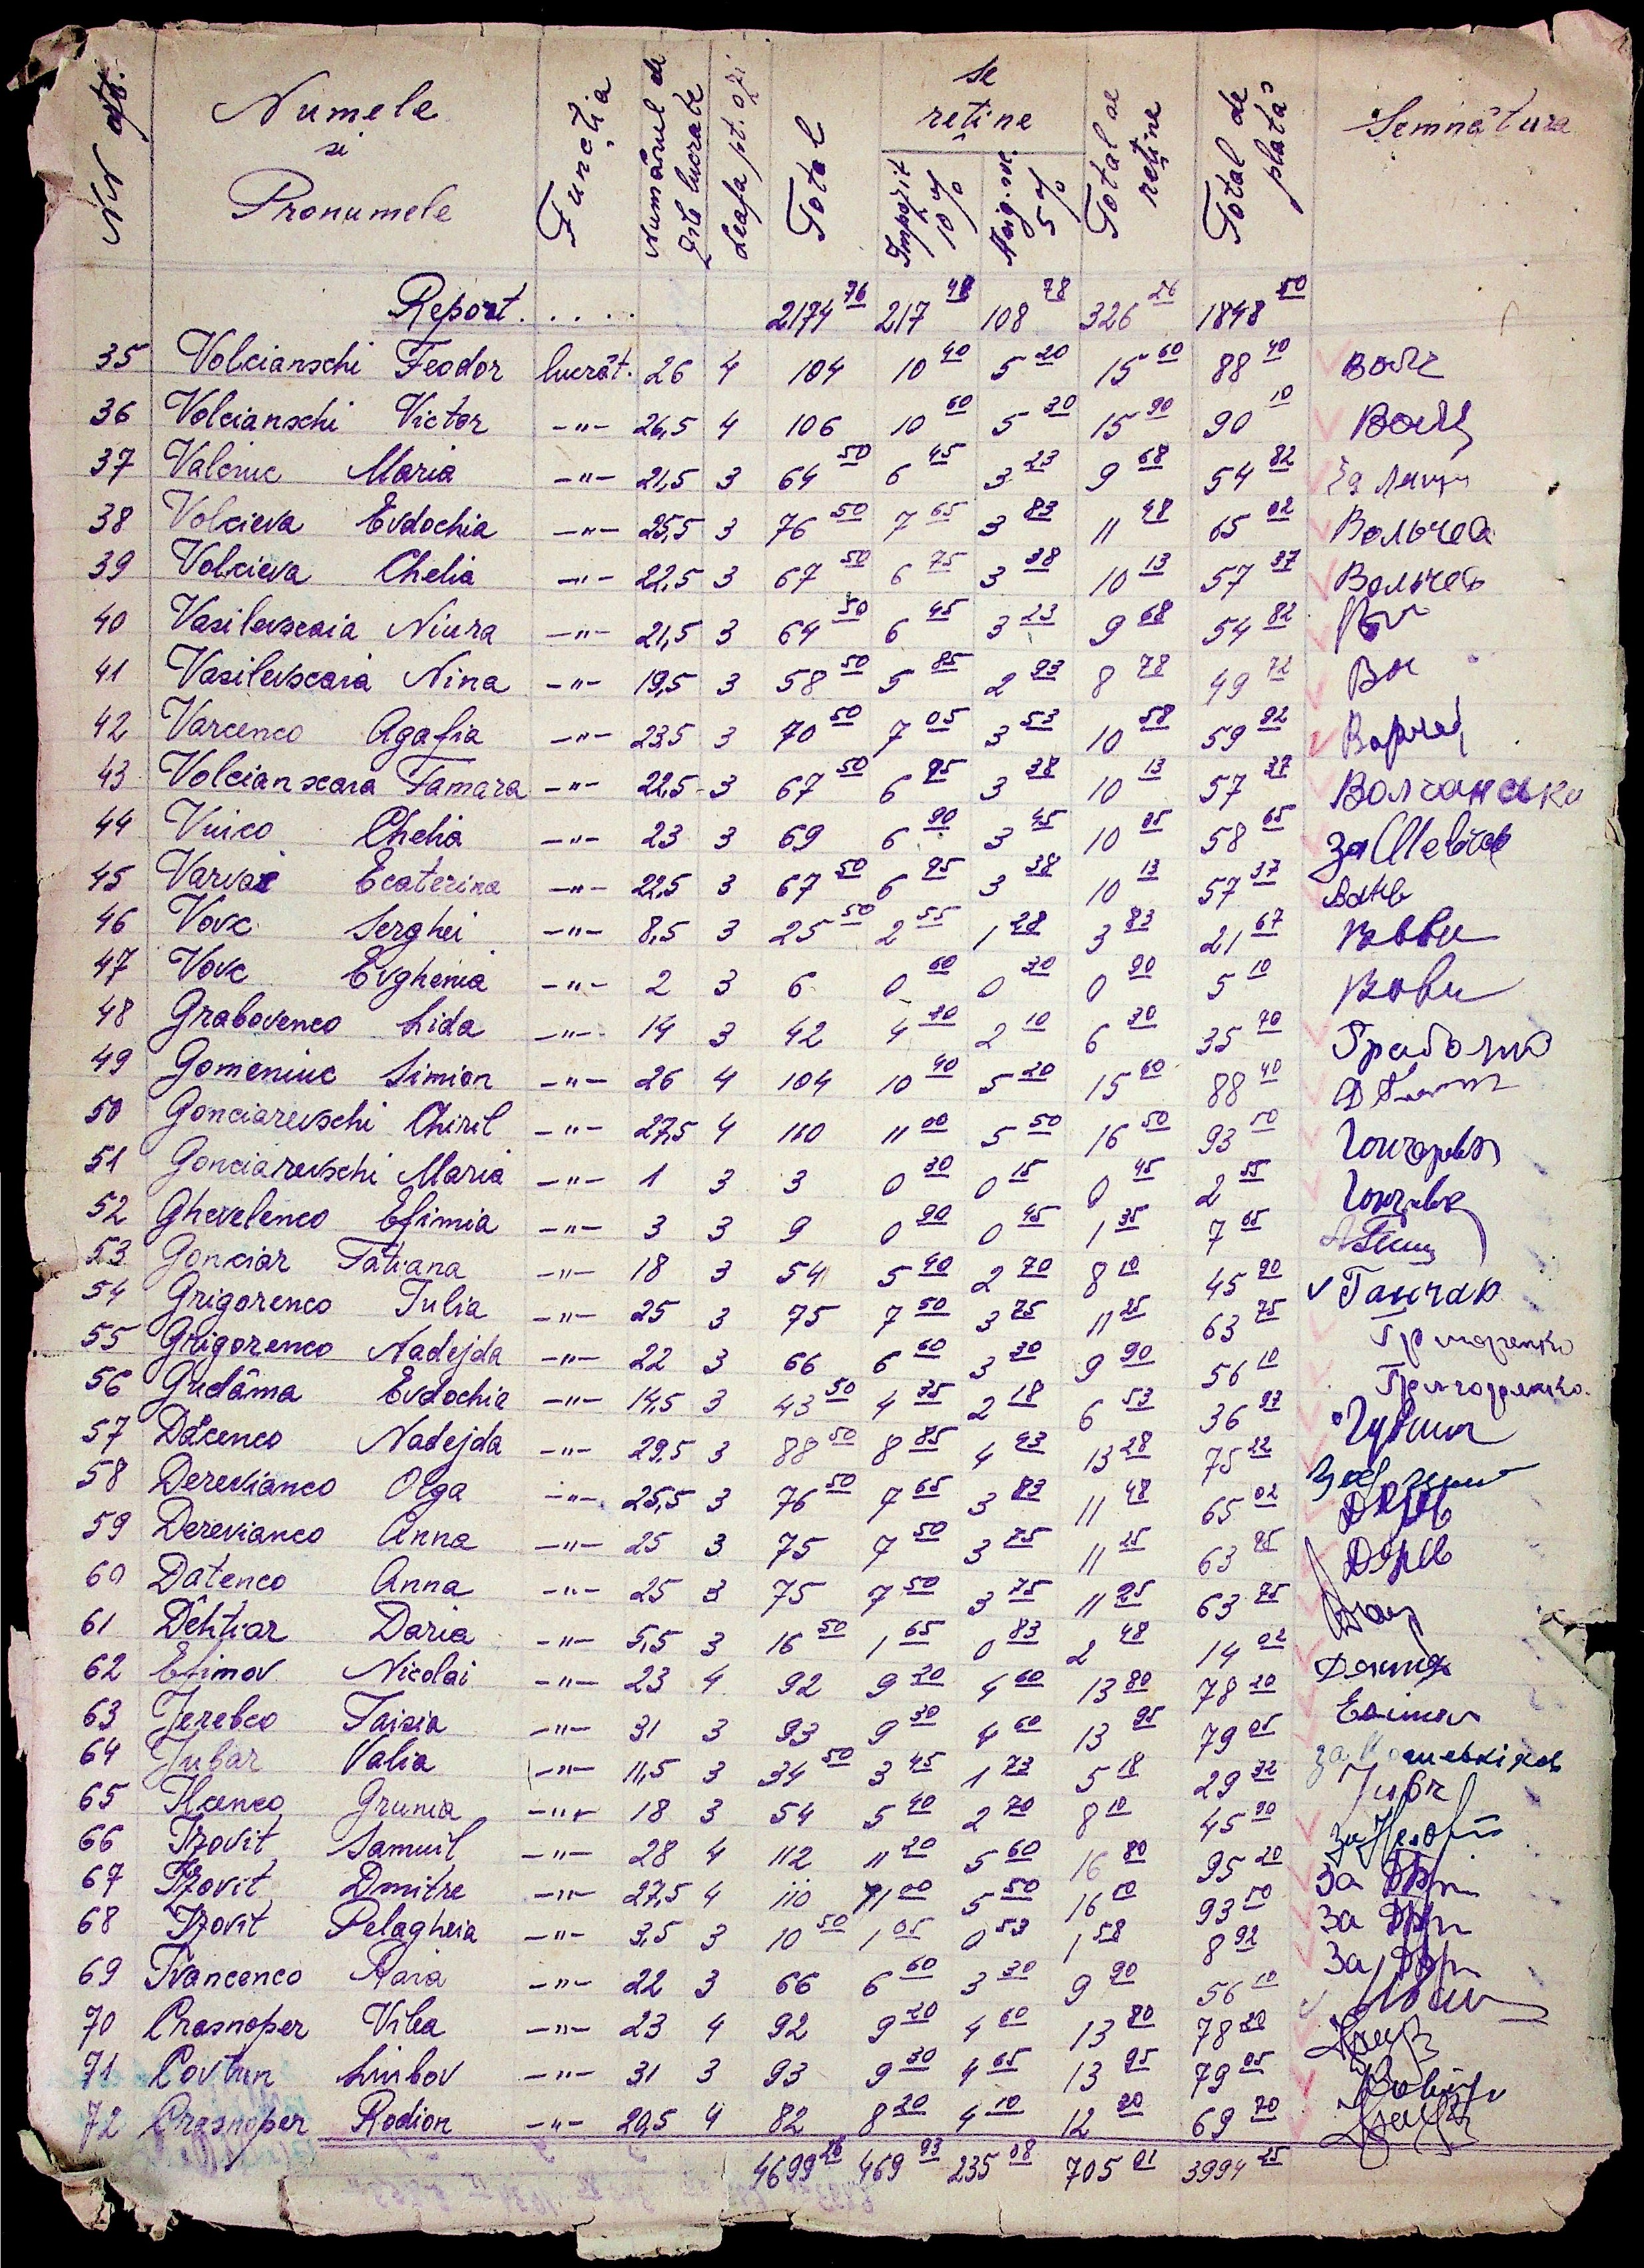 Nr crt. Numele si Pronumele Funcția Numărul de zile lucrate Leafa pt. o zi Total se rețîne Impozit 10% Asig. soc. 5% Total de rețîne Total de plată Semnătura
Report..... 2174 76 217 48 108 78 326 26 1848 50
35 Volcianschi Feodor lucrăt. 26 4 104 10 40 5 20 15 60 88 40 Волч
36 Volcianschi Victor -"- 26,5 4 106 10 60 5 30 15 90 90 10 Волч
37 Valeniuc Maria -"- 21,5 3 64 50 6 45 3 23 9 68 54 82
38 Volcieva Evdochia -"- 25,5 3 76 50 7 65 3 83 11 48 65 02 Вольчева
39 Volcieva Chelia -"- 22,5 3 67 50 6 75 3 38 10 13 57 37 Вольчев
40 Vasilevscaia Niura -"- 21,5 3 64 50 6 45 3 23 9 68 54 82
41 Vasilevscaia Nina -"- 19,5 3 58 50 5 85 2 93 8 78 49 72 Вас
42 Varcenco Agafia -"- 23,5 3 70 50 7 05 3 53 10 58 59 92 Варчен
43 Volcianscaia Tamara -"- 22,5 3 67 50 6 75 3 38 10 13 57 37 Волчанська
44 Vuico Chelia -"- 23 3 69 6 90 3 45 10 35 58 65 за
45 Varvas Ecaterina -"- 22,5 3 67 50 6 75 3 38 10 13 57 37
46 Vovc Serghei -"- 8,5 3 25 50 2 55 1 28 3 83 21 67 Вовк
47 Vovc Evghenia -"- 2 3 6 0 60 0 30 0 90 5 10 Вовк
48 Grabovenco Lida -"- 14 3 42 4 20 2 10 6 30 35 70
49 Gomeniuc Simion -"- 26 4 104 10 40 5 20 15 60 88 40
50 Gonciarevschi Chiril -"- 27,5 4 110 11 00 5 50 16 50 93 50 Гончаревс
51 Gonciarevschi Maria -"- 1 3 3 0 30 0 15 0 45 2 55
52 Ghevelenco Efimia -"- 3 3 9 0 90 0 45 1 35 7 65
53 Gonciar Tatiana -"- 18 3 54 5 40 2 70 8 10 45 90 Ганчар
54 Grigorenco Iulia -"- 25 3 75 7 50 3 75 11 25 63 75 Григоренко
55 Grigorenco Nadejda -"- 22 3 66 6 60 3 30 9 90 56 10 Григоренко.
56 Gudâma Evdochia -"- 14,5 3 43 50 4 35 2 18 6 53 36 97
57 Dacenco Nadejda -"- 29,5 3 88 50 8 85 4 43 13 28 75 22
58 Derevianco Olga -"- 25,5 3 76 50 7 65 3 83 11 48 65 02 Дерев
59 Derevianco Anna -"- 25 3 75 7 50 3 75 11 25 63 85 Дерев
60 Datenco Anna -"- 25 3 75 7 50 3 75 11 25 63 75
61 Dehtiar Daria -"- 5,5 3 16 50 1 65 0 83 2 48 14 02
62 Efimov Nicolai -"- 23 4 92 9 20 4 60 13 80 78 20 Ефимов
63 Jerebco Taisia -"- 31 3 93 9 30 4 60 13 95 79 05
64 Jubar Valia -"- 11,5 3 34 50 3 45 1 73 5 18 29 32
65 Ilcenco Grunia -"- 18 3 54 5 40 2 70 8 10 45 90 за
66 Izovit Samuil -"- 28 4 112 11 20 5 60 16 80 95 20 за
67 Izovit Dmitre -"- 27,5 4 110 11 00 5 50 16 50 93 50 за
68 Izovit Pelagheia -"- 3,5 3 10 50 1 05 0 53 1 58 8 92 за
69 Ivancenco Raia -"- 22 3 66 6 60 3 30 9 90 56 10
70 Crasnoper Vilea -"- 23 4 92 9 20 4 60 13 80 78 20
71 Covtun Liubov -"- 31 3 93 9 30 4 65 13 95 79 05
72 Crasnoper Rodion -"- 20,5 4 82 8 20 4 10 12 30 69 70
4699 26 469 93 235 08 705 01 3994 25